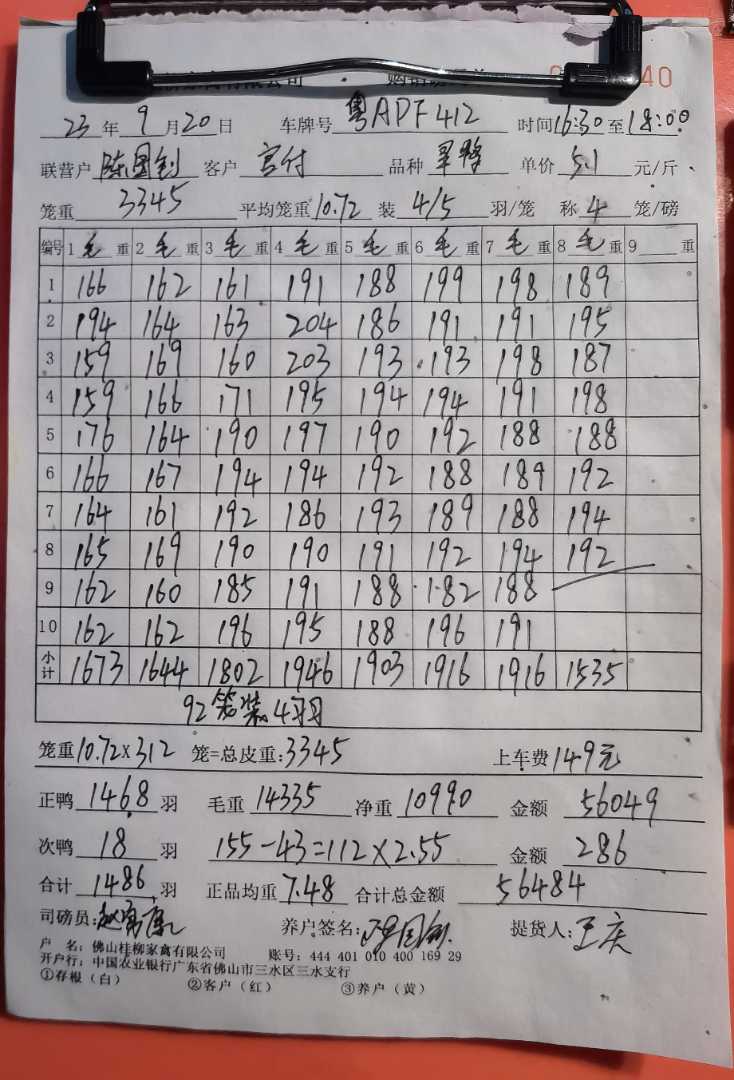 40
23年9月20日 车牌号粤ADF412 时间16:30至18:00
联营户陈国钊 客户宫付 品种 单价5.1元/斤
笼重3345 平均笼重10.72装4/5羽/笼 称4笼/磅
编号 1毛重 2毛重 3毛重 4毛重 5毛重 6毛重 7毛重 8毛重 9重
1 166 162 161 191 188 199 198 189
2 194 164 163 204 186 191 191 195
3 159 169 160 203 193 193 198 187
4 159 166 171 195 194 194 191 198
5 176 164 190 197 190 192 188 188
6 166 167 194 194 192 188 189 192
7 164 161 192 186 193 189 188 194
8 165 169 190 190 191 192 194 192
9 162 160 185 191 188 182 188
10 162 162 196 195 188 196 191
小计 1673 1644 1802 1946 1903 1916 1916 1535
92笼装4羽
笼重10.72×312笼=总皮重:3345 上车费149元
正鸭1468羽 毛重14335 净重10990 金额56049
次鸭18羽 155-43=112×2.55 金额286
合计1486羽 正品均重7.48 合计总金额56484
司磅员: 养户签名: 提货人:王庆
户 名:佛山桂柳家禽有限公司 账号:444 401 010 400 169 29
开户行:中国农业银行广东省佛山市三水区三水支行
①存根(白) ②客户(红) ③养户(黄)